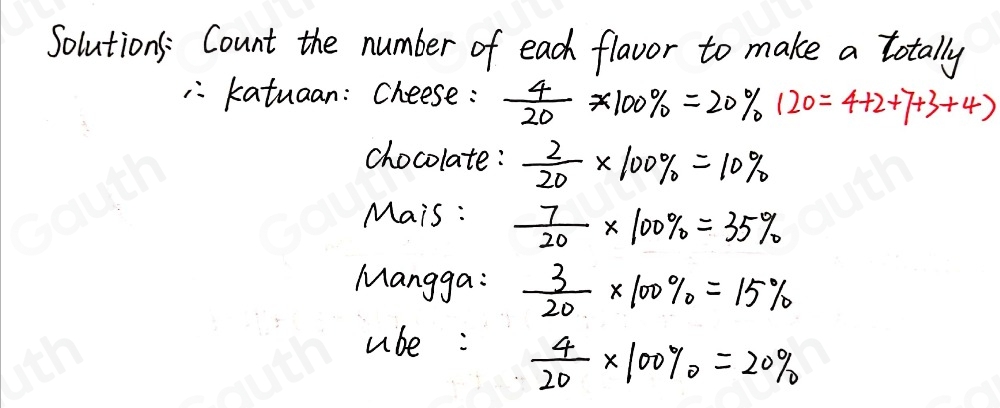 Solutions: Count the number of each flavor to make a totally
∴ katuaan: Cheese: 4/20 ×100% = 20% (20 = 4+2+7+3+4)
chocolate: 2/20 × 100% = 10%
Mais: 7/20 × 100% = 35%
Mangga: 3/20 × 100% = 15%
ube: 4/20 × 100% = 20%